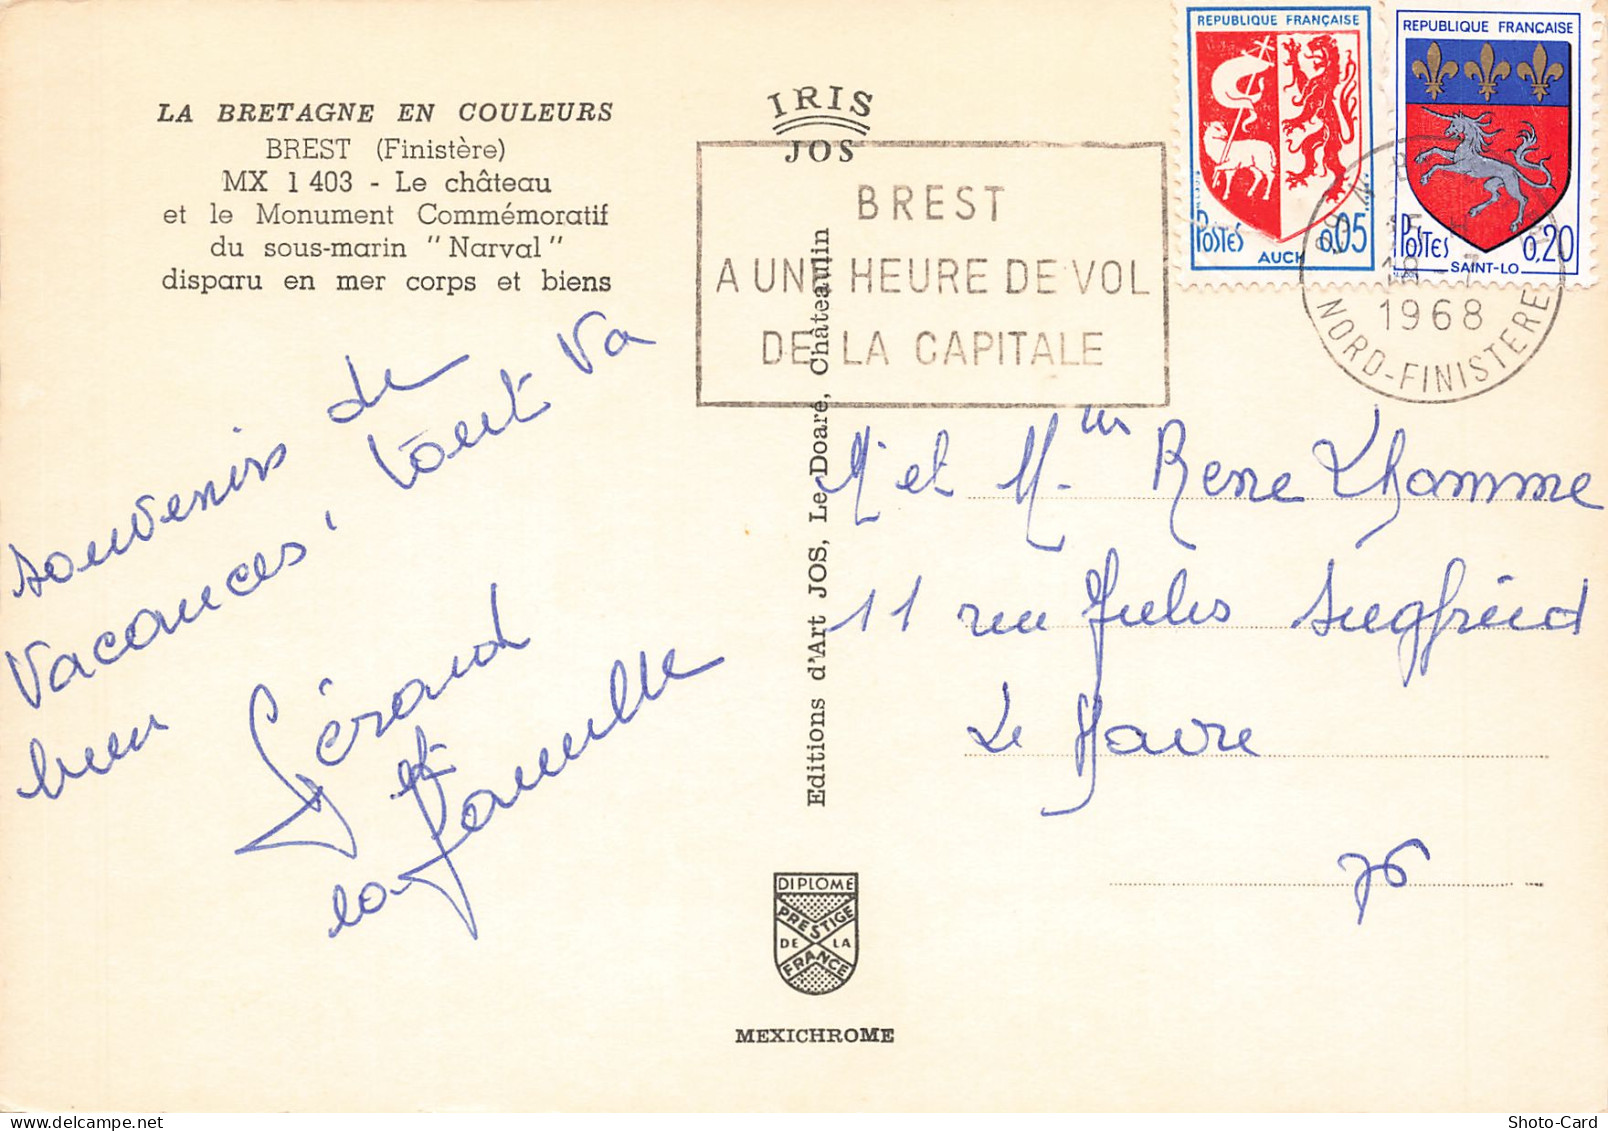 LA BRETAGNE EN COULEURS
BREST (Finistère)
MX 1 403 - Le château
et le Monument Commémoratif
du sous-marin "Narval"
disparu en mer corps et biens
IRIS
JOS
BREST
A UNE HEURE DE VOL
DE LA CAPITALE
REPUBLIQUE FRANÇAISE
POSTES
0,05
AUCH
REPUBLIQUE FRANÇAISE
POSTES
0,20
SAINT-LO
18 - 7
1968
NORD-FINISTERE
souvenirs de
vacances, tout va
bien
Gérard
et
la famille
Editions d'Art JOS, Le Doaré, Châteaulin
M. et Mme Rene Lhomme
11 rue Jules Siegfried
Le Havre
76
DIPLOME
PRESTIGE
DE LA
FRANCE
MEXICHROME
Shoto-Card